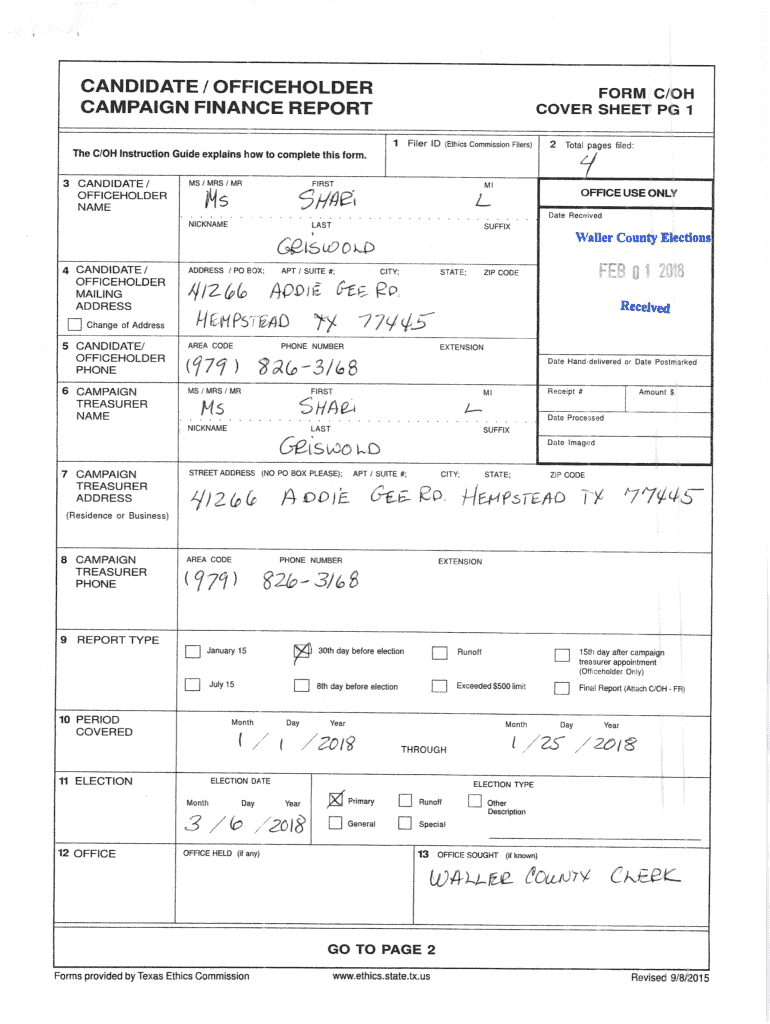 CANDIDATE / OFFICEHOLDER
CAMPAIGN FINANCE REPORT
FORM C/OH
COVER SHEET PG 1
The C/OH Instruction Guide explains how to complete this form.
1 Filer ID (Ethics Commission Filers)
2 Total pages filed:
4
3 CANDIDATE / OFFICEHOLDER NAME
MS / MRS / MR FIRST MI
Ms SHARI L
NICKNAME LAST SUFFIX
GRISWOLD
OFFICE USE ONLY
Date Received
Waller County Elections
FEB 01 2018
Received
4 CANDIDATE / OFFICEHOLDER MAILING ADDRESS
Change of Address
ADDRESS / PO BOX; APT / SUITE #; CITY; STATE; ZIP CODE
41266 ADDIE GEE RD.
HEMPSTEAD TX 77445
5 CANDIDATE/ OFFICEHOLDER PHONE
AREA CODE PHONE NUMBER EXTENSION
(979) 826-3168
Date Hand-delivered or Date Postmarked
6 CAMPAIGN TREASURER NAME
MS / MRS / MR FIRST MI
Ms SHARI L
NICKNAME LAST SUFFIX
GRISWOLD
Receipt # Amount $
Date Processed
Date Imaged
7 CAMPAIGN TREASURER ADDRESS
(Residence or Business)
STREET ADDRESS (NO PO BOX PLEASE); APT / SUITE #; CITY; STATE; ZIP CODE
41266 ADDIE GEE RD. HEMPSTEAD TX 77445
8 CAMPAIGN TREASURER PHONE
AREA CODE PHONE NUMBER EXTENSION
(979) 826-3168
9 REPORT TYPE
January 15
30th day before election
Runoff
15th day after campaign treasurer appointment (Officeholder Only)
July 15
8th day before election
Exceeded $500 limit
Final Report (Attach C/OH - FR)
10 PERIOD COVERED
Month Day Year
1 / 1 / 2018
THROUGH
Month Day Year
1 / 25 / 2018
11 ELECTION
ELECTION DATE
Month Day Year
3 / 6 / 2018
ELECTION TYPE
Primary
Runoff
Other Description
General
Special
12 OFFICE
OFFICE HELD (if any)
13 OFFICE SOUGHT (if known)
WALLER COUNTY CLERK
GO TO PAGE 2
Forms provided by Texas Ethics Commission
www.ethics.state.tx.us
Revised 9/8/2015